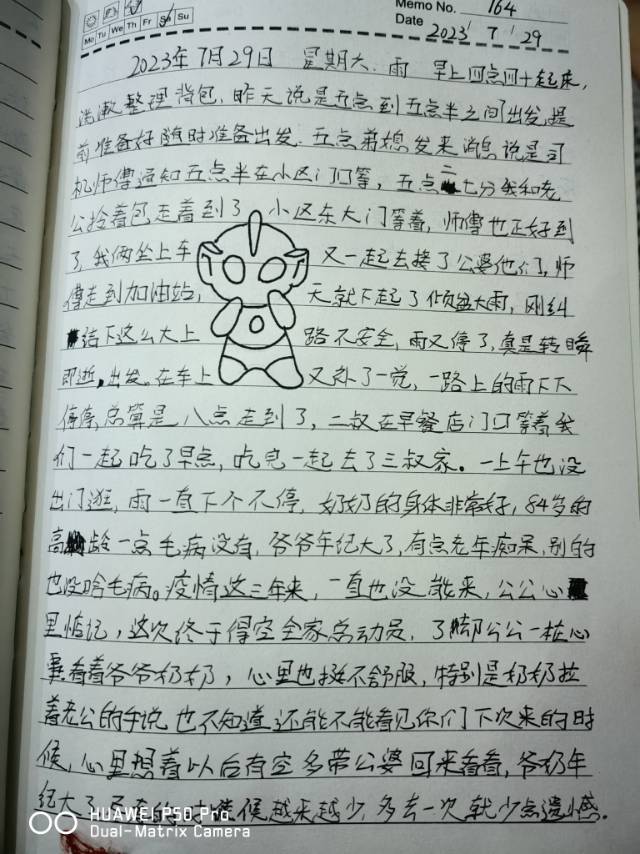 Memo No. 164
Mo Tu We Th Fr Sa Su
Date 2023 / 7 / 29
2023年7月29日 星期六 雨 早上四点四十起来,
洗漱整理背包,昨天说是五点到五点半之间出发,提
前准备好随时准备出发.五点弟媳发来消息说是司
机师傅通知五点半在小区门口等,五点二七分我和老
公拎着包走着到了小区东大门等着,师傅也正好到
了,我俩坐上车又一起去接了公婆他们,师
傅走到加油站,天就下起了倾盆大雨,刚纠
结下这么大上路不安全,雨又停了,真是转瞬
即逝,出发.在车上又补了一觉,一路上的雨下下
停停,总算是八点走到了,二叔在早餐店门口等着我
们一起吃了早点,吃完一起去了三叔家。一上午也没
出门逛,雨一直下个不停,奶奶的身体非常好,84岁的
高龄一点毛病没有,爷爷年纪大了,有点老年痴呆,别的
也没啥毛病。疫情这三年来,一直也没能来,公公心
里惦记,这次终于得空全家总动员,了却公公一桩心
看着爷爷奶奶,心里也挺不舒服,特别是奶奶拉
着老公的手说也不知道还能不能看见你们下次来的时
候,心里想着以后有空多带公婆回来看看,爷奶年
纪大了,候越来越少,多去一次就少点遗憾。
HUAWEI P50 Pro
Dual-Matrix Camera